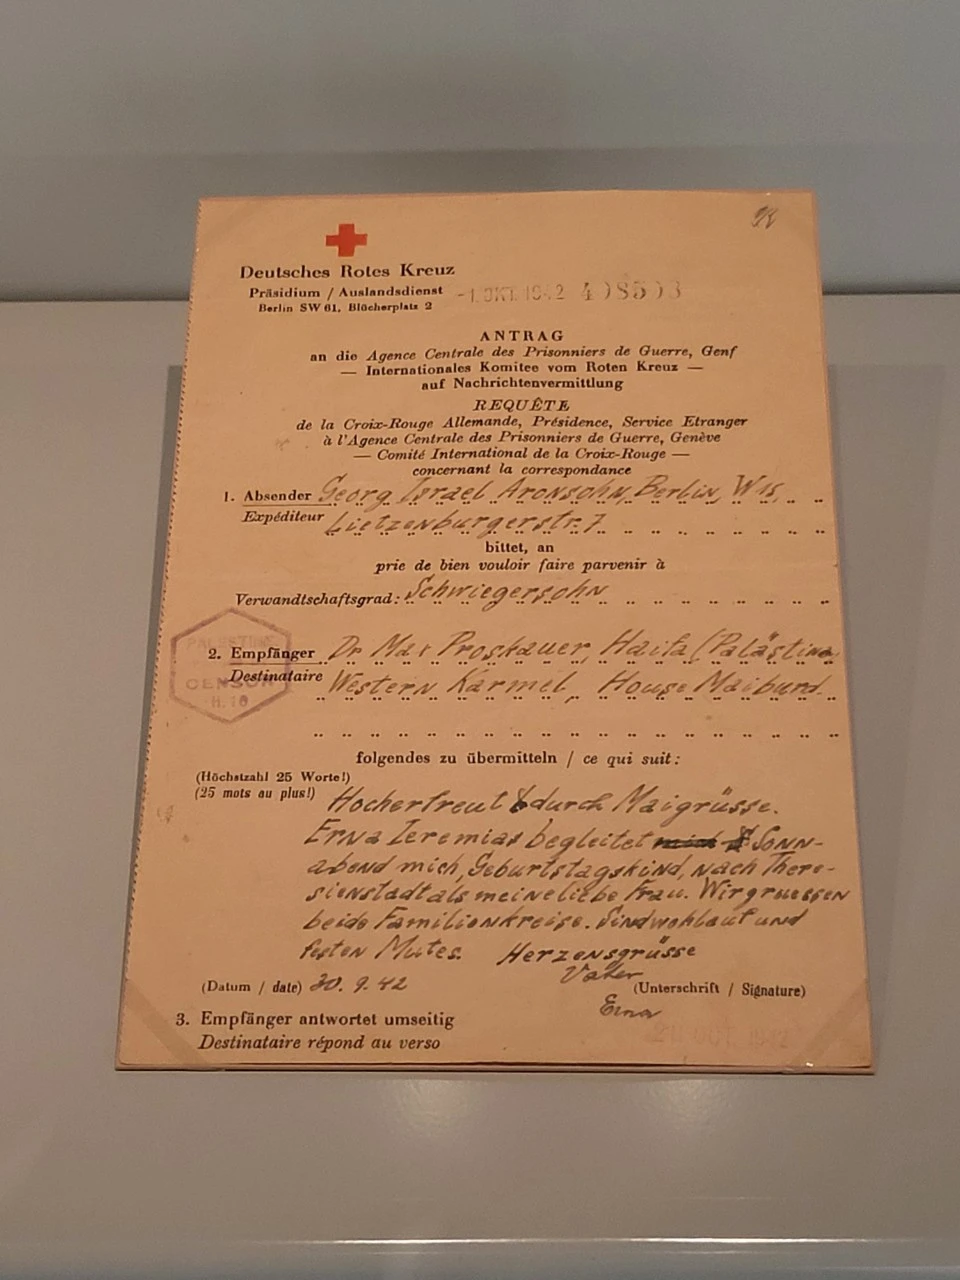 Deutsches Rotes Kreuz
Präsidium / Auslandsdienst
Berlin SW 61, Blücherplatz 2
-1. OKT. 1942 408503
ANTRAG
an die Agence Centrale des Prisonniers de Guerre, Genf
— Internationales Komitee vom Roten Kreuz —
auf Nachrichtenvermittlung
REQUÊTE
de la Croix-Rouge Allemande, Présidence, Service Etranger
à l'Agence Centrale des Prisonniers de Guerre, Genève
— Comité International de la Croix-Rouge —
concernant la correspondance
1. Absender Georg Israel Aronsohn, Berlin, W 15,
Expéditeur Lietzenburgerstr. 7
bittet, an
prie de bien vouloir faire parvenir à
Verwandtschaftsgrad: Schwiegersohn
PALESTINE
CENSOR
2. Empfänger Dr Max Proskauer, Haifa (Palästina
Destinataire Western Karmel, House Maiburd
folgendes zu übermitteln / ce qui suit:
(Höchstzahl 25 Worte!)
(25 mots au plus!)
Hocherfreut durch Maigrüsse.
Erna Jeremias begleitet Sonn-
abend mich, Geburtstagskind, nach There-
sienstadt als meine liebe Frau. Wir gruessen
beide Familienkreise. Sind wohlauf und
festen Mutes. Herzensgrüsse
Vater
(Datum / date) 30. 9. 42 (Unterschrift / Signature)
Erna
3. Empfänger antwortet umseitig
Destinataire répond au verso